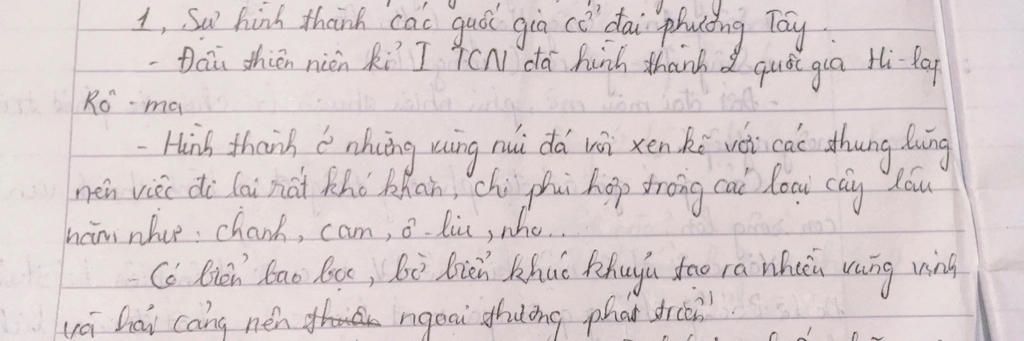 1, Sự hình thành các quốc gia cổ đại phương Tây.
- Đầu thiên niên kỉ I TCN đã hình thành 2 quốc gia Hi-lạp
Rô-ma
- Hình thành ở những vùng núi đá vôi xen kẽ với các thung lũng
nên việc đi lại rất khó khăn, chỉ phù hợp trồng các loại cây lâu
năm như: chanh, cam, ô-liu, nho...
- Có biển bao bọc, bờ biển khúc khuỷu tạo ra nhiều vũng vịnh
và hải cảng nên ngoại thương phát triển.